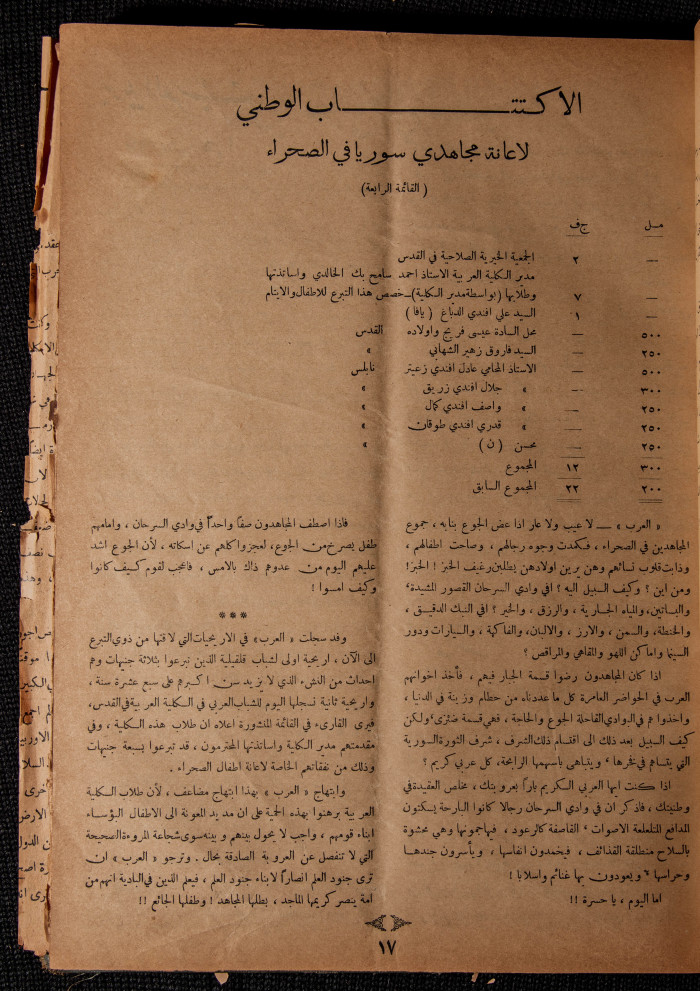 الاكتتاب الوطني
لاعانة مجاهدي سوريا في الصحراء
( القائمة الرابعة )
مـل ج ف
— ٢ الجمعية الخيرية الصلاحية في القدس
مدير الكلية العربية الاستاذ احمد سامح بك الخالدي واساتذتها
— ٧ وطلابها (بواسطة مدير الكلية) — خصص هذا التبرع للاطفال والايتام
— ١ السيد علي افندي الدباغ ( يافا )
٥٠٠ — محل السادة عيسى فريج واولاده القدس
٢٥٠ — السيد فاروق زهير الشهابي »
٥٠٠ — الاستاذ المحامي عادل افندي زعيتر نابلس
٣٠٠ — » جلال افندي زريق »
٢٥٠ — » واصف افندي كمال »
٢٥٠ — » قدري افندي طوقان »
٢٥٠ — محسن ( ن ) »
٣٠٠ ١٢ المجموع
٢٠٠ ٢٢ المجموع السابق
« العرب » — لا عيب ولا عار اذا عض الجوع بنابه ، جموع
المجاهدين في الصحراء ، فكمدت وجوه رجالهم ، وصاحت اطفالهم ،
وذابت قلوب نسائهم وهن يرين اولادهن يطلبن رغيف الخبز ! الخبز !
ومن اين ؟ وكيف السبيل اليه ؟ افي وادي السرحان القصور المشيدة ،
والبساتين، والمياه الجارية ، والرزق ، والخير ؟ افي النبك الدقيق ،
والحنطة، والسمن ، والارز ، والالبان، والفاكهة ، والسيارات ودور
السينما واماكن اللهو والمقاهي والمراقص ؟
اذا كان المجاهدون رضوا قسمة الجبار فيهم ، فأخذ اخوانهم
العرب في الحواضر العامرة كل ما عددناه من حطام وزينة في الدنيا ،
واخذوا هم في الوادي القاحلة الجوع والحاجة ، فهي قسمة ضئزى ، ولكن
كيف السبيل بعد ذلك الى اقتسام ذلك الشرف ، شرف الثورة السورية
التي يقاسم في فخرها ، ويتباهى باسهمها الرابحة، كل عربي كريم ؟
اذا كنت ايها العربي الكريم باراً بعروبتك ، مخلص العقيدة في
وطنيتك ، فاذكر ان في وادي السرحان رجالا كانوا البارحة يسكتون
المدافع المتلعلعة الاصوات ، القاصفة كالرعود ، فيهاجمونها وهي محشوة
بالسلاح منطلقة القذائف ، فيخمدون انفاسها ، ويأسرون جندها
وحراسها ، ويعودون بها غنائم واسلابا !
اما اليوم ، يا حسرة !!
فاذا اصطف المجاهدون صفاً واحداً في وادي السرحان ، وامامهم
طفل يصرخ من الجوع، لعجزوا كلهم عن اسكاته ، لأن الجوع اشد
عليهم اليوم من عدوهم ذاك بالامس ، فاعجب لقوم كيف كانوا
وكيف امسوا !
***
وقد سجلت « العرب » في الاريحيات التي لاقتها من ذوي التبرع
الى الآن ، اريحية اولى لشباب قلقيلية الذين تبرعوا بثلاثة جنيهات وهم
احداث من النشء الذي لا يزيد سن اكبرهم على سبع عشرة سنة ،
واريحية ثانية نسجلها اليوم للشباب العربي في الكلية العربية في القدس،
فيرى القارىء في القائمة المنشورة اعلاه ان طلاب هذه الكلية ، وفي
مقدمتهم مدير الكلية واساتذتها المحترمون ، قد تبرعوا بسبعة جنيهات
وذلك من نفقاتهم الخاصة لاعانة اطفال الصحراء .
وابتهاج « العرب » بهذا ابتهاج مضاعف ، لأن طلاب الكلية
العربية برهنوا بهذه الحمية على ان مد يد المعونة الى الاطفال البؤساء
ابناء قومهم ، واجب لا يحول بينهم وبينه سوى شجاعة المروءة الصحيحة
التي لا تنفصل عن العروبة الصادقة بحال . وترجو « العرب » ان
ترى جنود العلم انصاراً لابناء جنود العلم ، فيعلم الذين في البادية انهم من
امة ينصر كريمها الماجد ، بطلها المجاهد ! وطفلها الجائع !!
١٧